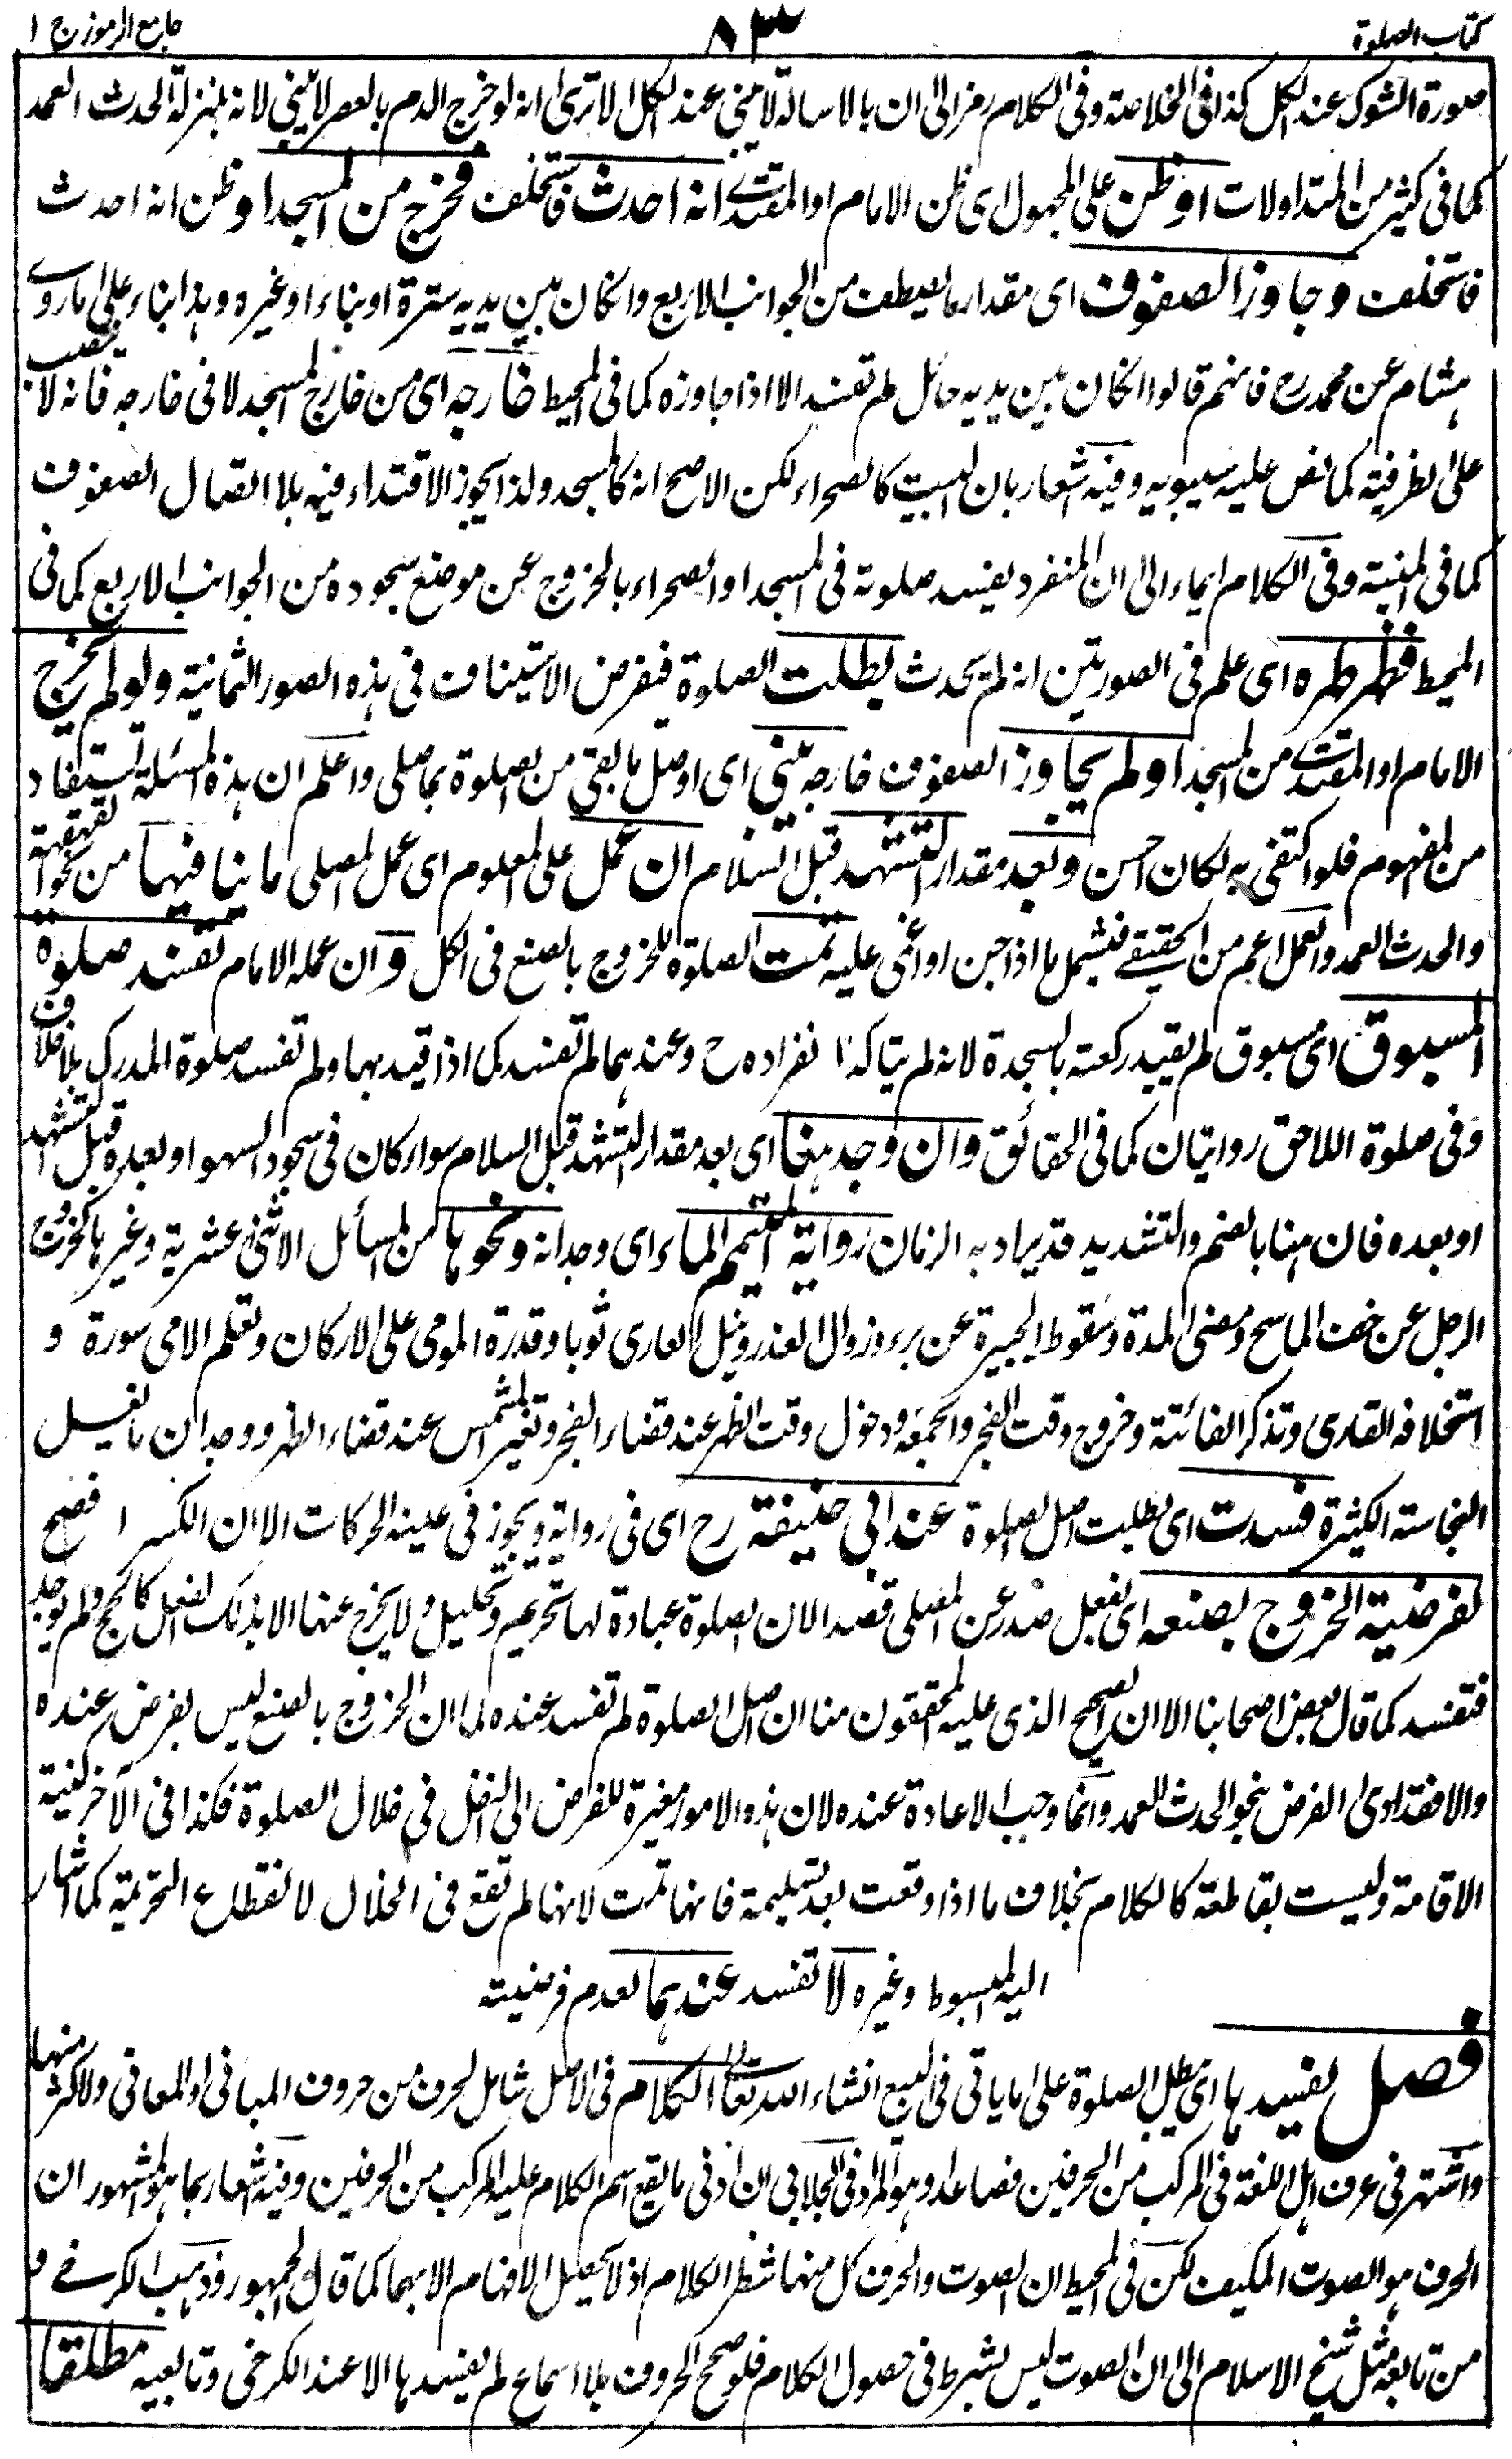 كتاب الصلوة
٨٣
جامع الرموز ج ١
صورة الشوك عند الكل كذا فى الخلاصة وفى الكلام رمز الى ان بالاسالة لا يبنى عند الكل الا ترى انه لو خرج الدم بالعصر لا يبنى لانه بمنزلة الحدث العمد
كما فى كثير من المتداولات او ظن على المجهول اى ظن الامام او المقتدى انه احدث فاستخلف فخرج من المسجد او ظن انه احدث
فاستخلف وجاوز الصفوف اى مقدار ما من الجوانب الاربع وان كان بين يديه سترة او بناء او غيره وهذا بناء على ما روى
هشام عن محمد رح فانهم قالوا ان كان بين يديه حائل لم تفسد الا اذا جاوزه كما فى المحيط خارجه اى من خارج المسجد لا فى خارجه فانه لا ينصب
على الظرفية كما نص عليه سيبويه وفيه اشعار بان البيت كالصحراء لكن الاصح انه كالمسجد ولذا يجوز الاقتداء فيه بلا اتصال الصفوف
كما فى المنية وفى الكلام ايماء الى ان المنفرد يفسد صلوته فى المسجد او الصحراء بالخروج عن موضع سجوده من الجوانب الاربع كما فى
المحيط فظهر طهره اى علم فى الصورتين انه لم يحدث بطلت الصلوة فيفرض الاستيناف فى هذه الصور الثمانية ولو لم يخرج
الامام او المقتدى من المسجد او لم يجاوز الصفوف خارجه بنى اى اوصل ما بقى من الصلوة بما صلى واعلم ان هذه المسئلة تستفاد
من المفهوم فلو اكتفى به لكان احسن وبعد مقدار التشهد قبل السلام ان عمل على المعلوم اى عمل المصلى ما ينافيها من نحو القهقهة
والحدث العمد والعمل اعم من الحقيقى فيشمل ما اذا جن او اغمى عليه تمت الصلوة للخروج بالصنع فى الكل وان عمله الامام تفسد صلوة
المسبوق اى مسبوق لم يقيد ركعته بالسجدة لانه لم يتأكد انفراده ح وعندهما لم تفسد كما اذا قيد بها ولم تفسد صلوة المدرك بلا خلاف
وفى صلوة اللاحق روايتان كما فى الحقائق وان وجد هنا اى بعد مقدار التشهد قبل السلام سواء كان فى سجود السهو او بعده قبل التشهد
او بعده فان هنا بالضم والتشديد قد يراد به الزمان رواية المتيمم الماء اى وجدانه ونحوها من المسائل الاثنى عشرية وغيرها كخروج
الرجل عن خف الماسح ومضى المدة وسقوط الجبيرة عن برء وزوال العذر ونيل العارى ثوبا وقدرة المومى على الاركان وتعلم الامى سورة و
استخلافه القارى وتذكر الفائتة وخروج وقت الفجر والجمعة ودخول وقت الظهر عند قضاء الفجر وتغير الشمس عند قضاء الظهر ووجدان ما يغسل
النجاسة الكثيرة فسدت اى بطلت اصل الصلوة عند ابى حنيفة رح اى فى رواية ويجوز فى عينه الحركات الا ان الكسر افصح
لفرضية الخروج بصنعه اى بفعل صدر عن المصلى قصدا لان الصلوة عبادة لها تحريم وتحليل ولا يخرج عنها الا بذلك الفعل كالحج ولم يوجد
فتفسد كما قال بعض اصحابنا الا ان الصحيح الذى عليه المحققون منا ان اصل الصلوة لم تفسد عنده لما ان الخروج بالصنع ليس بفرض عنده
والا فقد ادى الفرض بنحو الحدث العمد وانما وجب الاعادة عنده لان هذه الامور مغيرة للفرض الى النفل فى خلال الصلوة فكذا فى الآخر كنية
الاقامة وليست بقاطعة كالكلام بخلاف ما اذا وقعت بعد تسليمة فانها تمت لانها لم تقع فى الخلال لانقطاع التحريمة كما اشار
اليه المبسوط وغيره لا تفسد عندهما لعدم فرضيته
فصل يفسدها اى يبطل الصلوة على ما يأتى فى البيع انشاء الله تعالى الكلام فى الاصل شامل لحرف من حروف المبانى او المعانى ولاكثر منها
واشتهر فى عرف اهل اللغة فى المركب من الحرفين فصاعدا وهو المراد فى الجلابى ان ادنى ما يقع اسم الكلام عليه المركب من الحرفين وفيه اشعار بما هو المشهور ان
الحرف هو الصوت المكيف لكن فى المحيط ان الصوت والحرف كل منهما شطر الكلام اذ لا يحصل الافهام الا بهما كما قال الجمهور وذهب الكرخى و
من تابعه مثل شيخ الاسلام الى ان الصوت ليس بشرط فى حصول الكلام فلو صحح الحروف بلا اسماع لم يفسدها الا عند الكرخى وتابعيه مطلقا